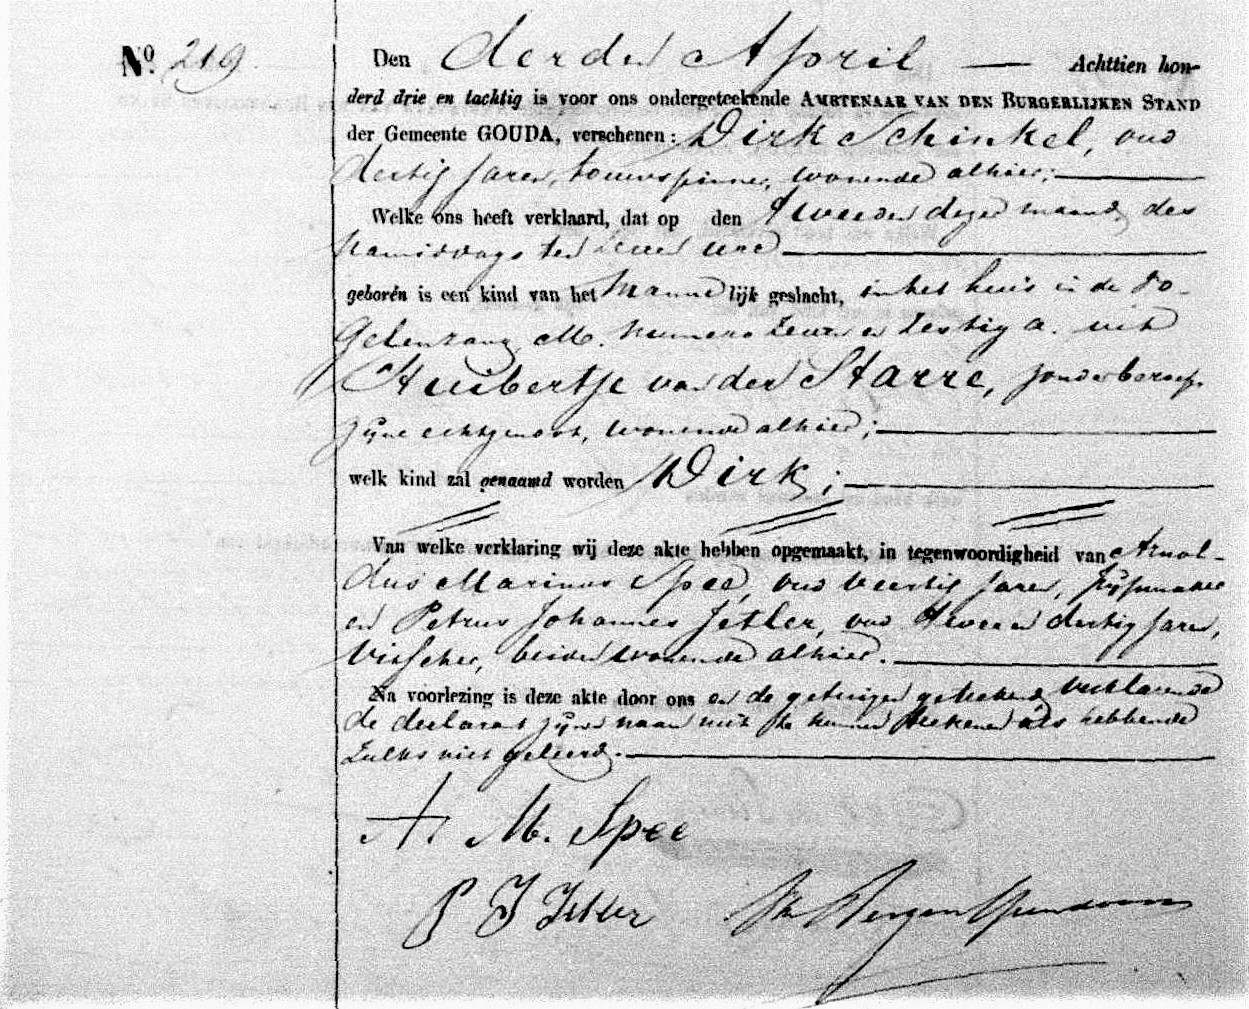 No. 219.
Den derden April — Achttien hon-
derd drie en tachtig is voor ons ondergeteekende AMBTENAAR VAN DEN BURGERLIJKEN STAND
der Gemeente GOUDA, verschenen: Dirk Schinkel, oud
dertig jaren, touwspinner, wonende alhier;
Welke ons heeft verklaard, dat op den tweeden dezer maand, des
namiddags ten zeven ure
geboren is een kind van het mannelijk geslacht, in het huis in de Vo-
gelenzang M. numero zeven en zestig a. uit
Huibertje van der Starre, zonder beroep,
zijne echtgenoot, wonende alhier;
welk kind zal genaamd worden Dirk;
Van welke verklaring wij deze akte hebben opgemaakt, in tegenwoordigheid van Arnol-
dus Marinus Spee, oud veertig jaren, pijpmaker
en Petrus Johannes Jetler, oud twee en dertig jaren,
visscher, beiden wonende alhier.
Na voorlezing is deze akte door ons en de getuigen geteekend, verklarende
de declarant zijnen naam niet te kunnen teekenen als hebbende
zulks niet geleerd.
A. M. Spee
P J Jetler